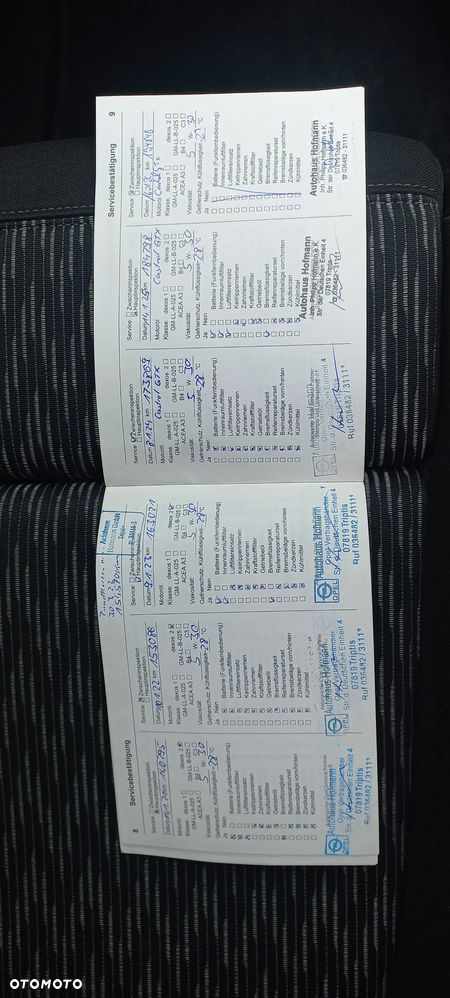 8 Servicebestätigung
Service Zwischeninspektion
Hauptinspektion
Datum km 140795
Motoröl
Klasse: dexos 1 dexos 2
GM-LL-A-025 GM-LL-B-025
ACEA A3 B4 C3
Viskosität 5 W- 30
Gefrierschutz, Kühlflüssigkeit -28 °C
Ja Nein
Batterie (Funkfernbedienung)
Innenraumluftfilter
Luftfiltereinsatz
Keilrippenriemen
Zahnriemen
Kraftstofffilter
Getriebeöl
Bremsflüssigkeit
Reifenreparaturset
Bremsbeläge vorn/hinten
Zündkerzen
Kühlmittel
OPEL Autohaus Hofmann
Opel Vertragspartner
Str. d. Deutschen Einheit 4
07819 Triptis
Ruf 036482 / 31111
Service Zwischeninspektion
Hauptinspektion
Datum km 153086
Motoröl
Klasse: dexos 1 dexos 2
GM-LL-A-025 GM-LL-B-025
ACEA A3 B4 C3
Viskosität 5 W- 30
Gefrierschutz, Kühlflüssigkeit -28 °C
Ja Nein
Batterie (Funkfernbedienung)
Innenraumluftfilter
Luftfiltereinsatz
Keilrippenriemen
Zahnriemen
Kraftstofffilter
Getriebeöl
Bremsflüssigkeit
Reifenreparaturset
Bremsbeläge vorn/hinten
Zündkerzen
Kühlmittel
OPEL Autohaus Hofmann
Str. d. Deutschen Einheit 4
07819 Triptis
Ruf 036482 / 31111
Autohaus
Service
Hauptinspektion
Datum 9.1.23 km 163021
Motoröl
Klasse: dexos 1 dexos 2
GM-LL-A-025 GM-LL-B-025
ACEA A3 B4 C3
Viskosität 5 W- 30
Gefrierschutz, Kühlflüssigkeit °C
Ja Nein
Batterie (Funkfernbedienung)
Innenraumluftfilter
Luftfiltereinsatz
Keilrippenriemen
Zahnriemen
Kraftstofffilter
Getriebeöl
Bremsflüssigkeit
Reifenreparaturset
Bremsbeläge vorn/hinten
Zündkerzen
Kühlmittel
OPEL Autohaus Hofmann
Opel Vertragspartner
Str. d. Deutschen Einheit 4
07819 Triptis
Ruf 036482 / 31111
Servicebestätigung 9
Service Zwischeninspektion
Hauptinspektion
Datum 8.1.24 km 173809
Motoröl Castrol GTX
Klasse: dexos 1 dexos 2
GM-LL-A-025 GM-LL-B-025
ACEA A3 B4 C3
Viskosität 5 W- 30
Gefrierschutz, Kühlflüssigkeit -28 °C
Ja Nein
Batterie (Funkfernbedienung)
Innenraumluftfilter
Luftfiltereinsatz
Keilrippenriemen
Zahnriemen
Kraftstofffilter
Getriebeöl
Bremsflüssigkeit
Reifenreparaturset
Bremsbeläge vorn/hinten
Zündkerzen
Kühlmittel
OPEL
Str. d. Deutschen Einheit 4
07819 Triptis
Ruf 036482 / 31111
Service Zwischeninspektion
Hauptinspektion
Datum 14.1.25 km 184798
Motoröl Castrol GTX
Klasse: dexos 1 dexos 2
GM-LL-A-025 GM-LL-B-025
ACEA A3 B4 C3
Viskosität 5 W- 30
Gefrierschutz, Kühlflüssigkeit -28 °C
Ja Nein
Batterie (Funkfernbedienung)
Innenraumluftfilter
Luftfiltereinsatz
Keilrippenriemen
Zahnriemen
Kraftstofffilter
Getriebeöl
Bremsflüssigkeit
Reifenreparaturset
Bremsbeläge vorn/hinten
Zündkerzen
Kühlmittel
Autohaus Hofmann
Inh. Philipp Hofmann e.K.
Str. der Deutschen Einheit 4
07819 Triptis
Service Zwischeninspektion
Hauptinspektion
Datum km
Motoröl Castrol GTX
Klasse: dexos 1 dexos 2
GM-LL-A-025 GM-LL-B-025
ACEA A3 B4 C3
Viskosität 5 W- 30
Gefrierschutz, Kühlflüssigkeit °C
Ja Nein
Batterie (Funkfernbedienung)
Innenraumluftfilter
Luftfiltereinsatz
Keilrippenriemen
Zahnriemen
Kraftstofffilter
Getriebeöl
Bremsflüssigkeit
Reifenreparaturset
Bremsbeläge vorn/hinten
Zündkerzen
Kühlmittel
Autohaus Hofmann
Inh. Philipp Hofmann e.K.
Str. der Deutschen Einheit 4
07819 Triptis
☎ 036482 - 31111
OTOMOTO